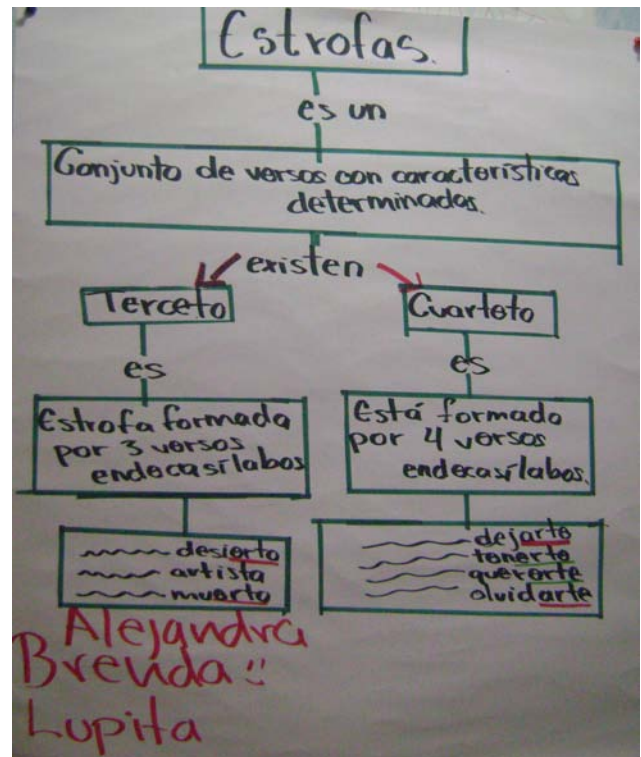 Estrofas.
es un
Conjunto de versos con características
determinadas.
existen
Terceto
es
Estrofa formada
por 3 versos
endecasílabos
desierto
artista
muerto
Cuarteto
es
Está formado
por 4 versos
endecasílabos.
dejarte
tenerte
quererte
olvidarte
Alejandra
Brenda!!
Lupita